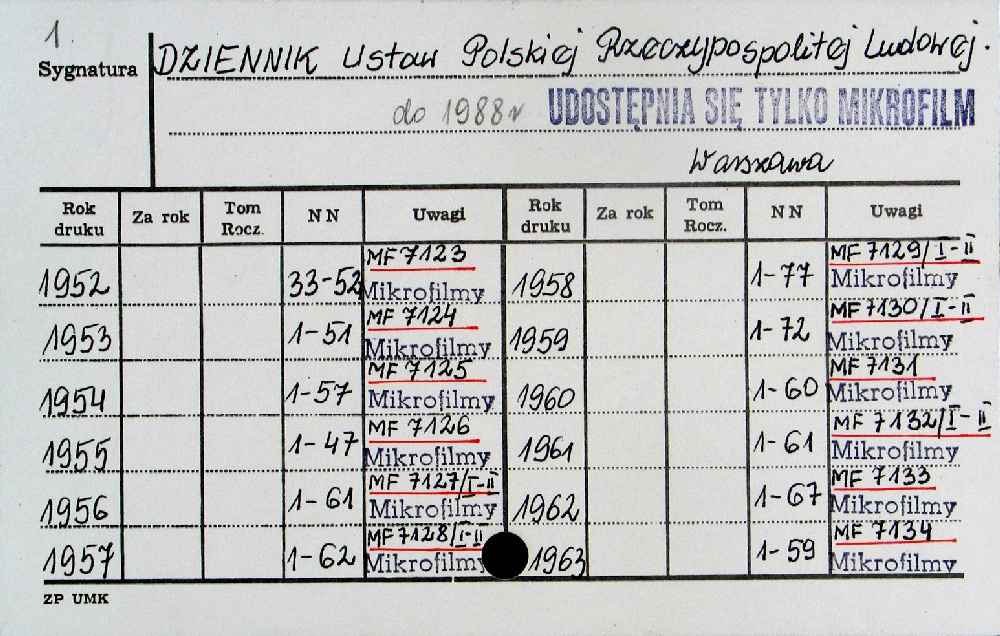 1
Sygnatura DZIENNIK Ustaw Polskiej Rzeczypospolitej Ludowej.
do 1988 r UDOSTĘPNIA SIĘ TYLKO MIKROFILM
Warszawa
Rok druku Za rok Tom Rocz. NN Uwagi Rok druku Za rok Tom Rocz. NN Uwagi
1952 33-52 MF 7123 Mikrofilmy 1958 1-77 MF 7129/I-II Mikrofilmy
1953 1-51 MF 7124 Mikrofilmy 1959 1-72 MF 7130/I-II Mikrofilmy
1954 1-57 MF 7125 Mikrofilmy 1960 1-60 MF 7131 Mikrofilmy
1955 1-47 MF 7126 Mikrofilmy 1961 1-61 MF 7132/I-II Mikrofilmy
1956 1-61 MF 7127/I-II Mikrofilmy 1962 1-67 MF 7133 Mikrofilmy
1957 1-62 MF 7128/I-II Mikrofilmy 1963 1-59 MF 7134 Mikrofilmy
ZP UMK